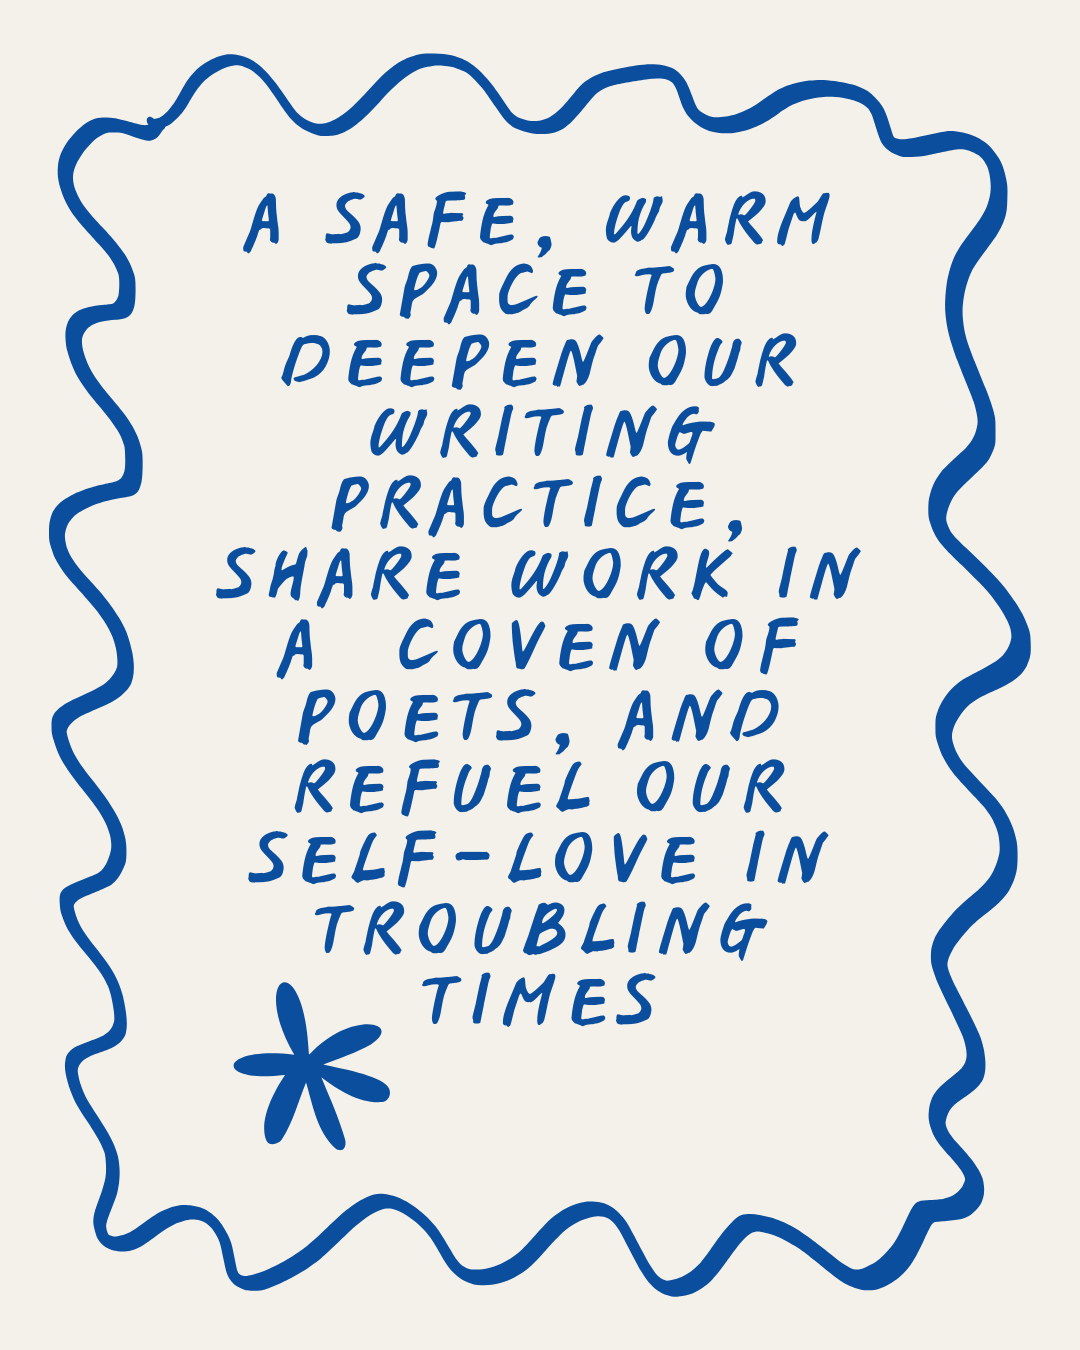 A SAFE, WARM
SPACE TO
DEEPEN OUR
WRITING
PRACTICE,
SHARE WORK IN
A  COVEN OF
POETS, AND
REFUEL OUR
SELF-LOVE IN
TROUBLING
TIMES